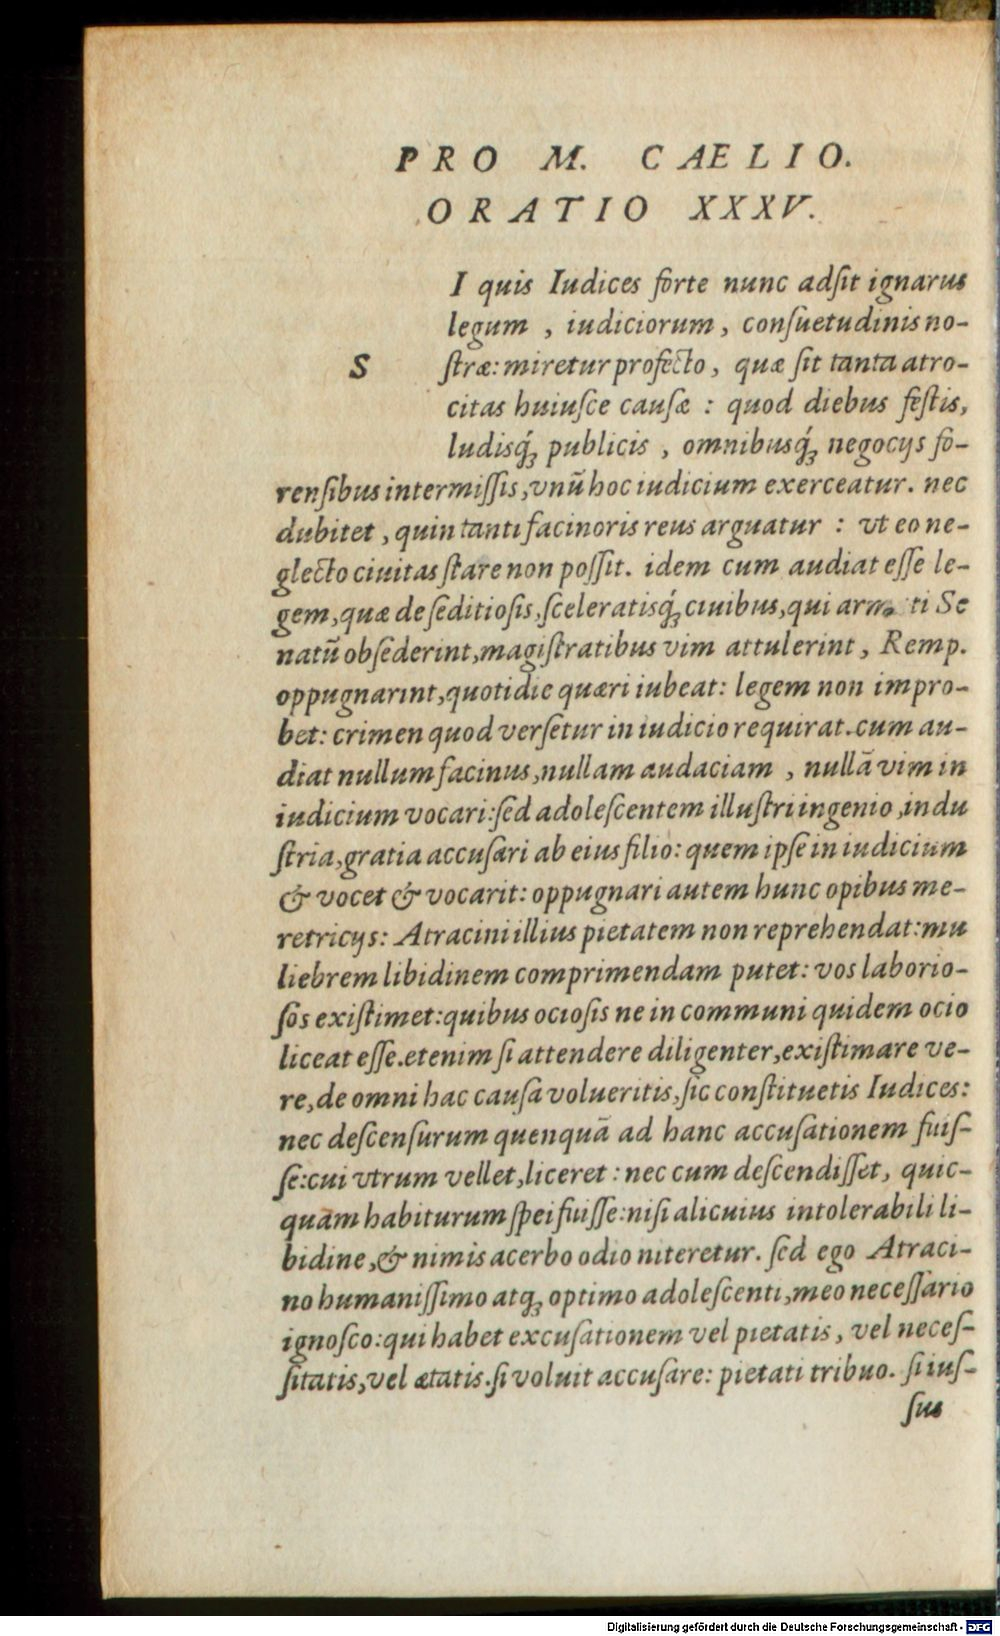 PRO M. CAELIO.
ORATIO XXXV.
I quis Iudices forte nunc adſit ignarus
legum , iudiciorum, conſuetudinis no-
S
ſtræ: miretur profecto, quæ ſit tanta atro-
citas huiuſce cauſæ : quod diebus feſtis,
ludisq́; publicis , omnibusq́; negocijs fo-
renſibus intermiſſis, vnũ hoc iudicium exerceatur. nec
dubitet , quin tanti facinoris reus arguatur : vt eo ne-
glecto ciuitas ſtare non poſſit. idem cum audiat eſſe le-
gem, quæ de ſeditioſis, ſceleratisq́; ciuibus, qui arm ti Se
natũ obſederint, magiſtratibus vim attulerint, Remp.
oppugnarint, quotidie quæri iubeat: legem non impro-
bet: crimen quod verſetur in iudicio requirat. cum au-
diat nullum facinus, nullam audaciam , nullã vim in
iudicium vocari: ſed adoleſcentem illuſtri ingenio, indu
ſtria, gratia accuſari ab eius filio: quem ipſe in iudicium
& vocet & vocarit: oppugnari autem hunc opibus me-
retricijs: Atracini illius pietatem non reprehendat: mu
liebrem libidinem comprimendam putet: vos laborio-
ſos exiſtimet: quibus ocioſis ne in communi quidem ocio
liceat eſſe. etenim ſi attendere diligenter, exiſtimare ve-
re, de omni hac cauſa volueritis, ſic conſtituetis Iudices:
nec deſcenſurum quenquã ad hanc accuſationem fuiſ-
ſe: cui vtrum vellet, liceret : nec cum deſcendiſſet, quic-
quam habiturum ſpei fuiſſe: niſi alicuius intolerabili li-
bidine, & nimis acerbo odio niteretur. ſed ego Atraci-
no humaniſſimo atq; optimo adoleſcenti, meo neceſſario
ignoſco: qui habet excuſationem vel pietatis, vel neceſ-
ſitatis, vel ætatis. ſi voluit accuſare: pietati tribuo. ſi iuſ-
ſus
Digitalisierung gefördert durch die Deutsche Forschungsgemeinschaft - DFG